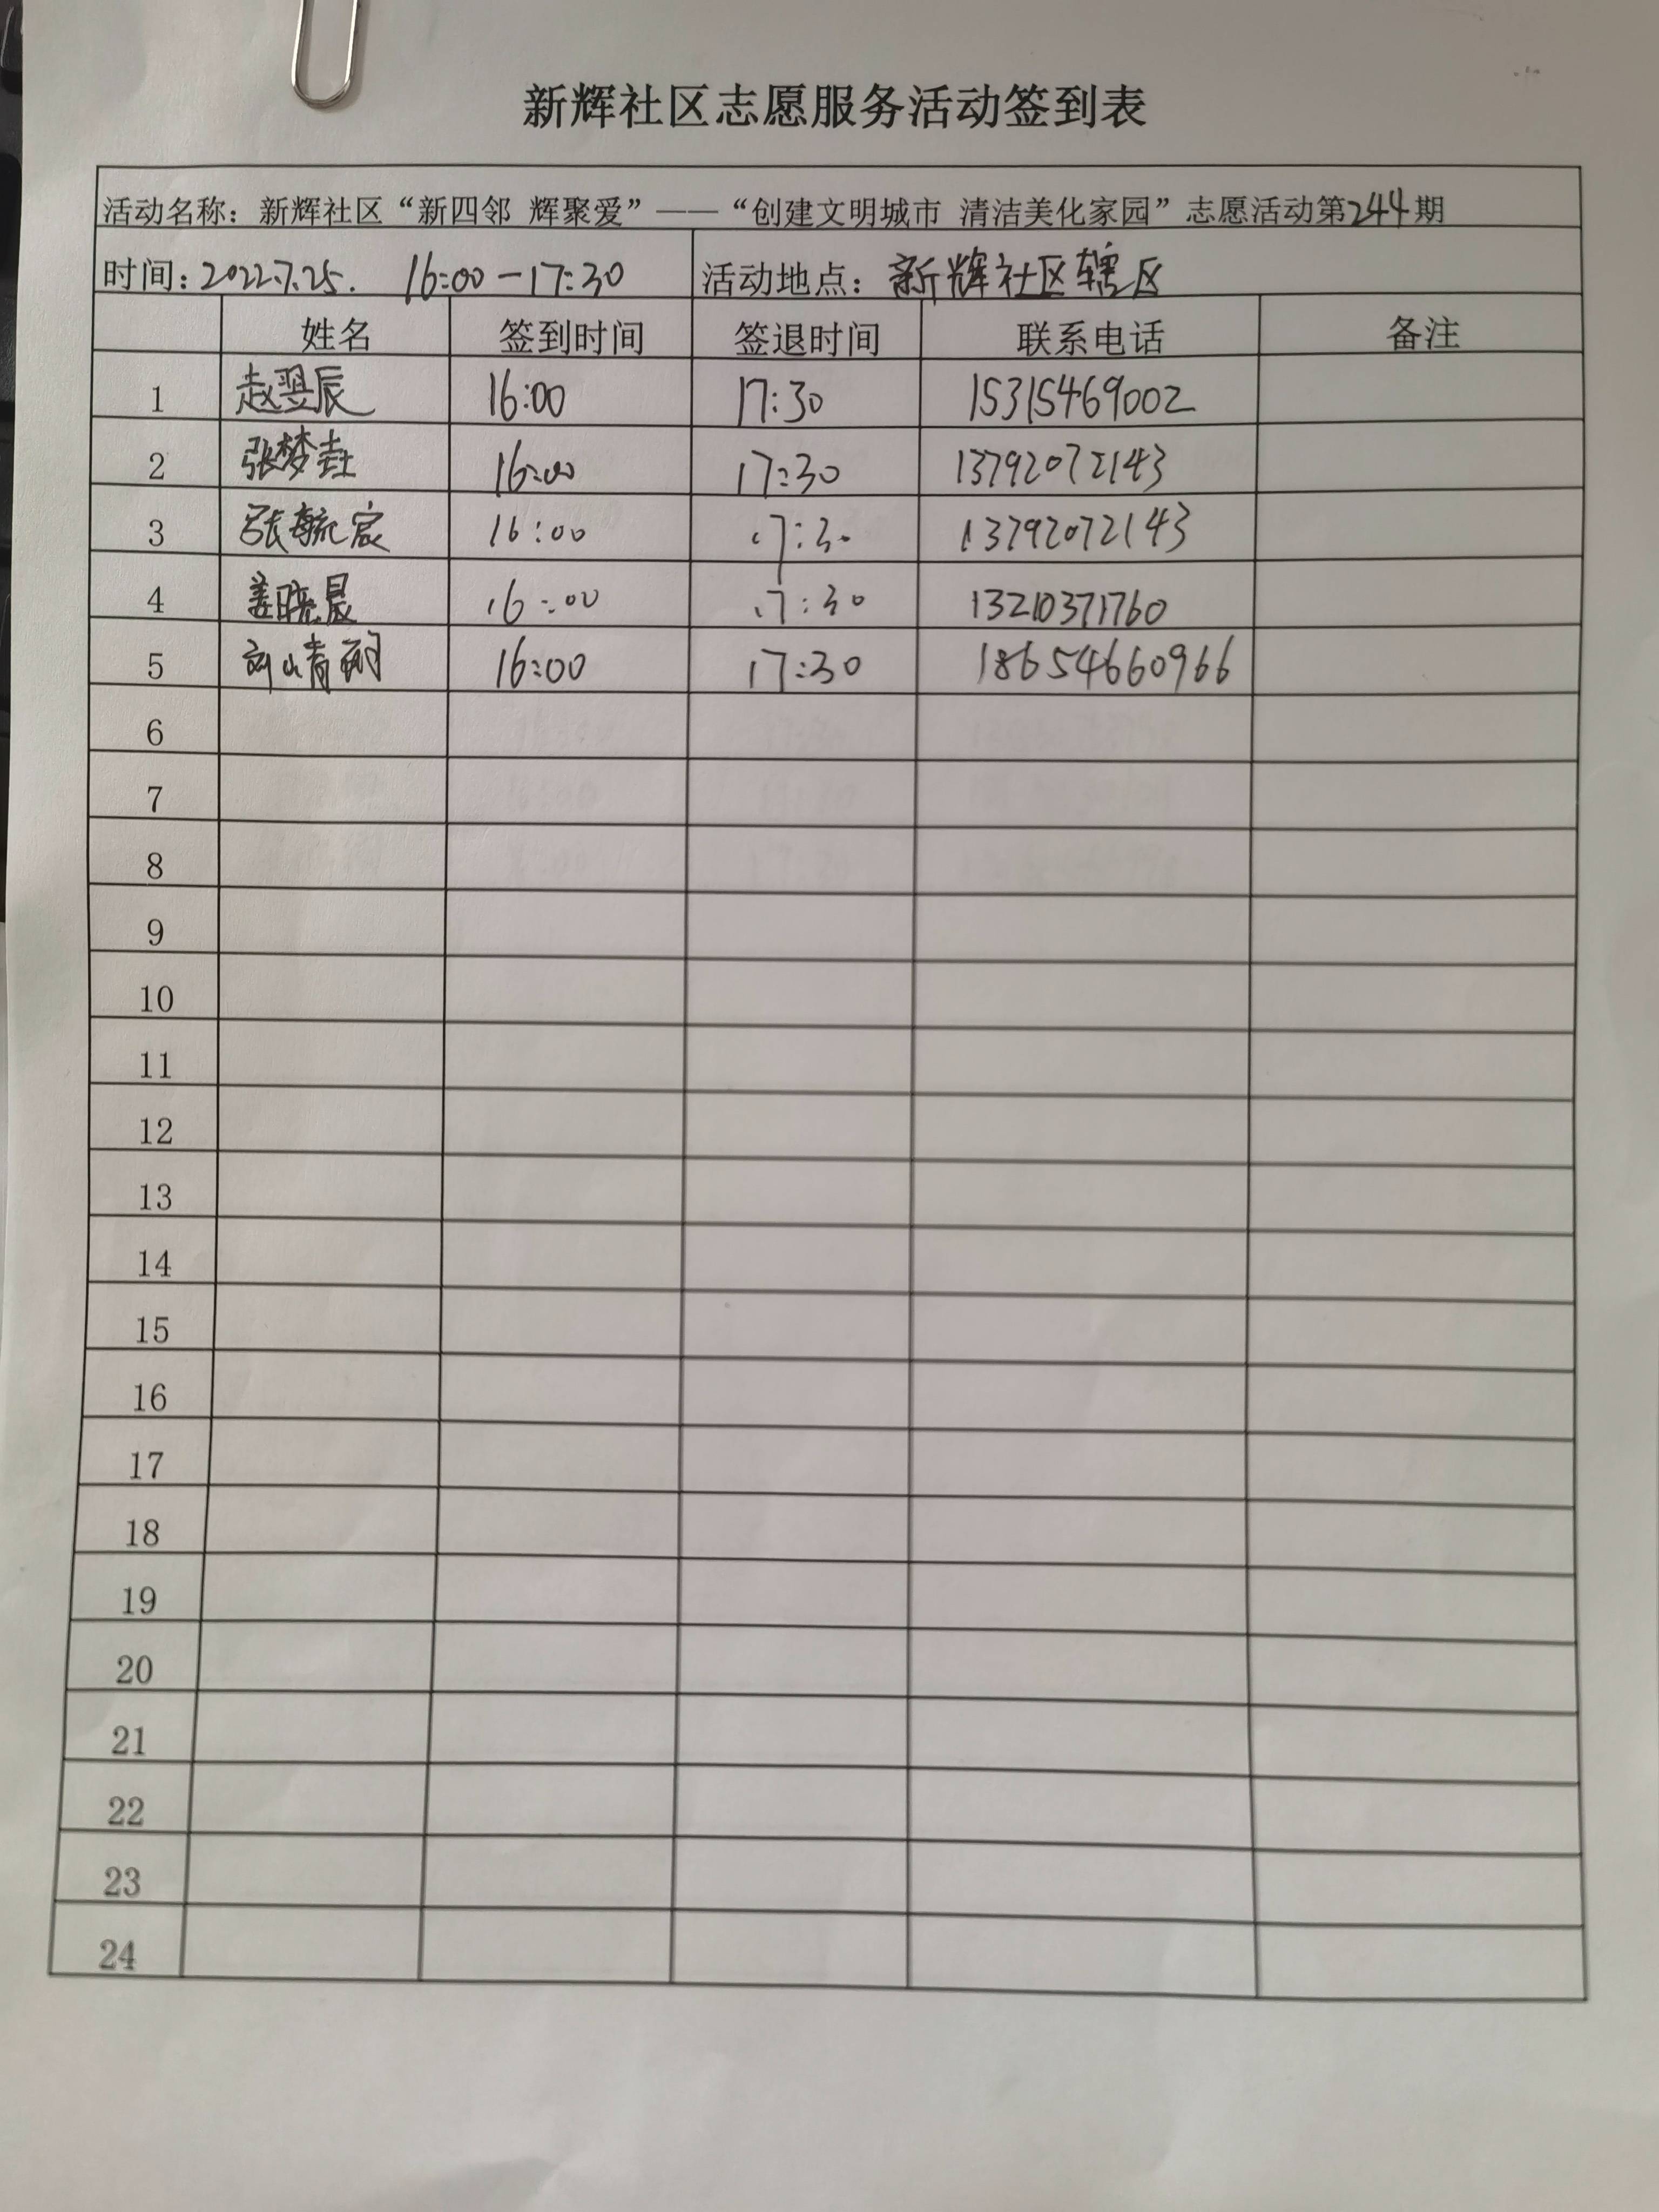 新辉社区志愿服务活动签到表
活动名称：新辉社区“新四邻 辉聚爱”——“创建文明城市 清洁美化家园”志愿活动第244期
时间：2022.7.25. 16:00-17:30 活动地点：新辉社区辖区
姓名 签到时间 签退时间 联系电话 备注
1 赵翌辰 16:00 17:30 15315469002
2 张梦 16:00 17:30 13792072143
3 张毓宸 16:00 17:30 13792072143
4 姜晓晨 16:00 17:30 13210371760
5 16:00 17:30 18654660966
6
7
8
9
10
11
12
13
14
15
16
17
18
19
20
21
22
23
24